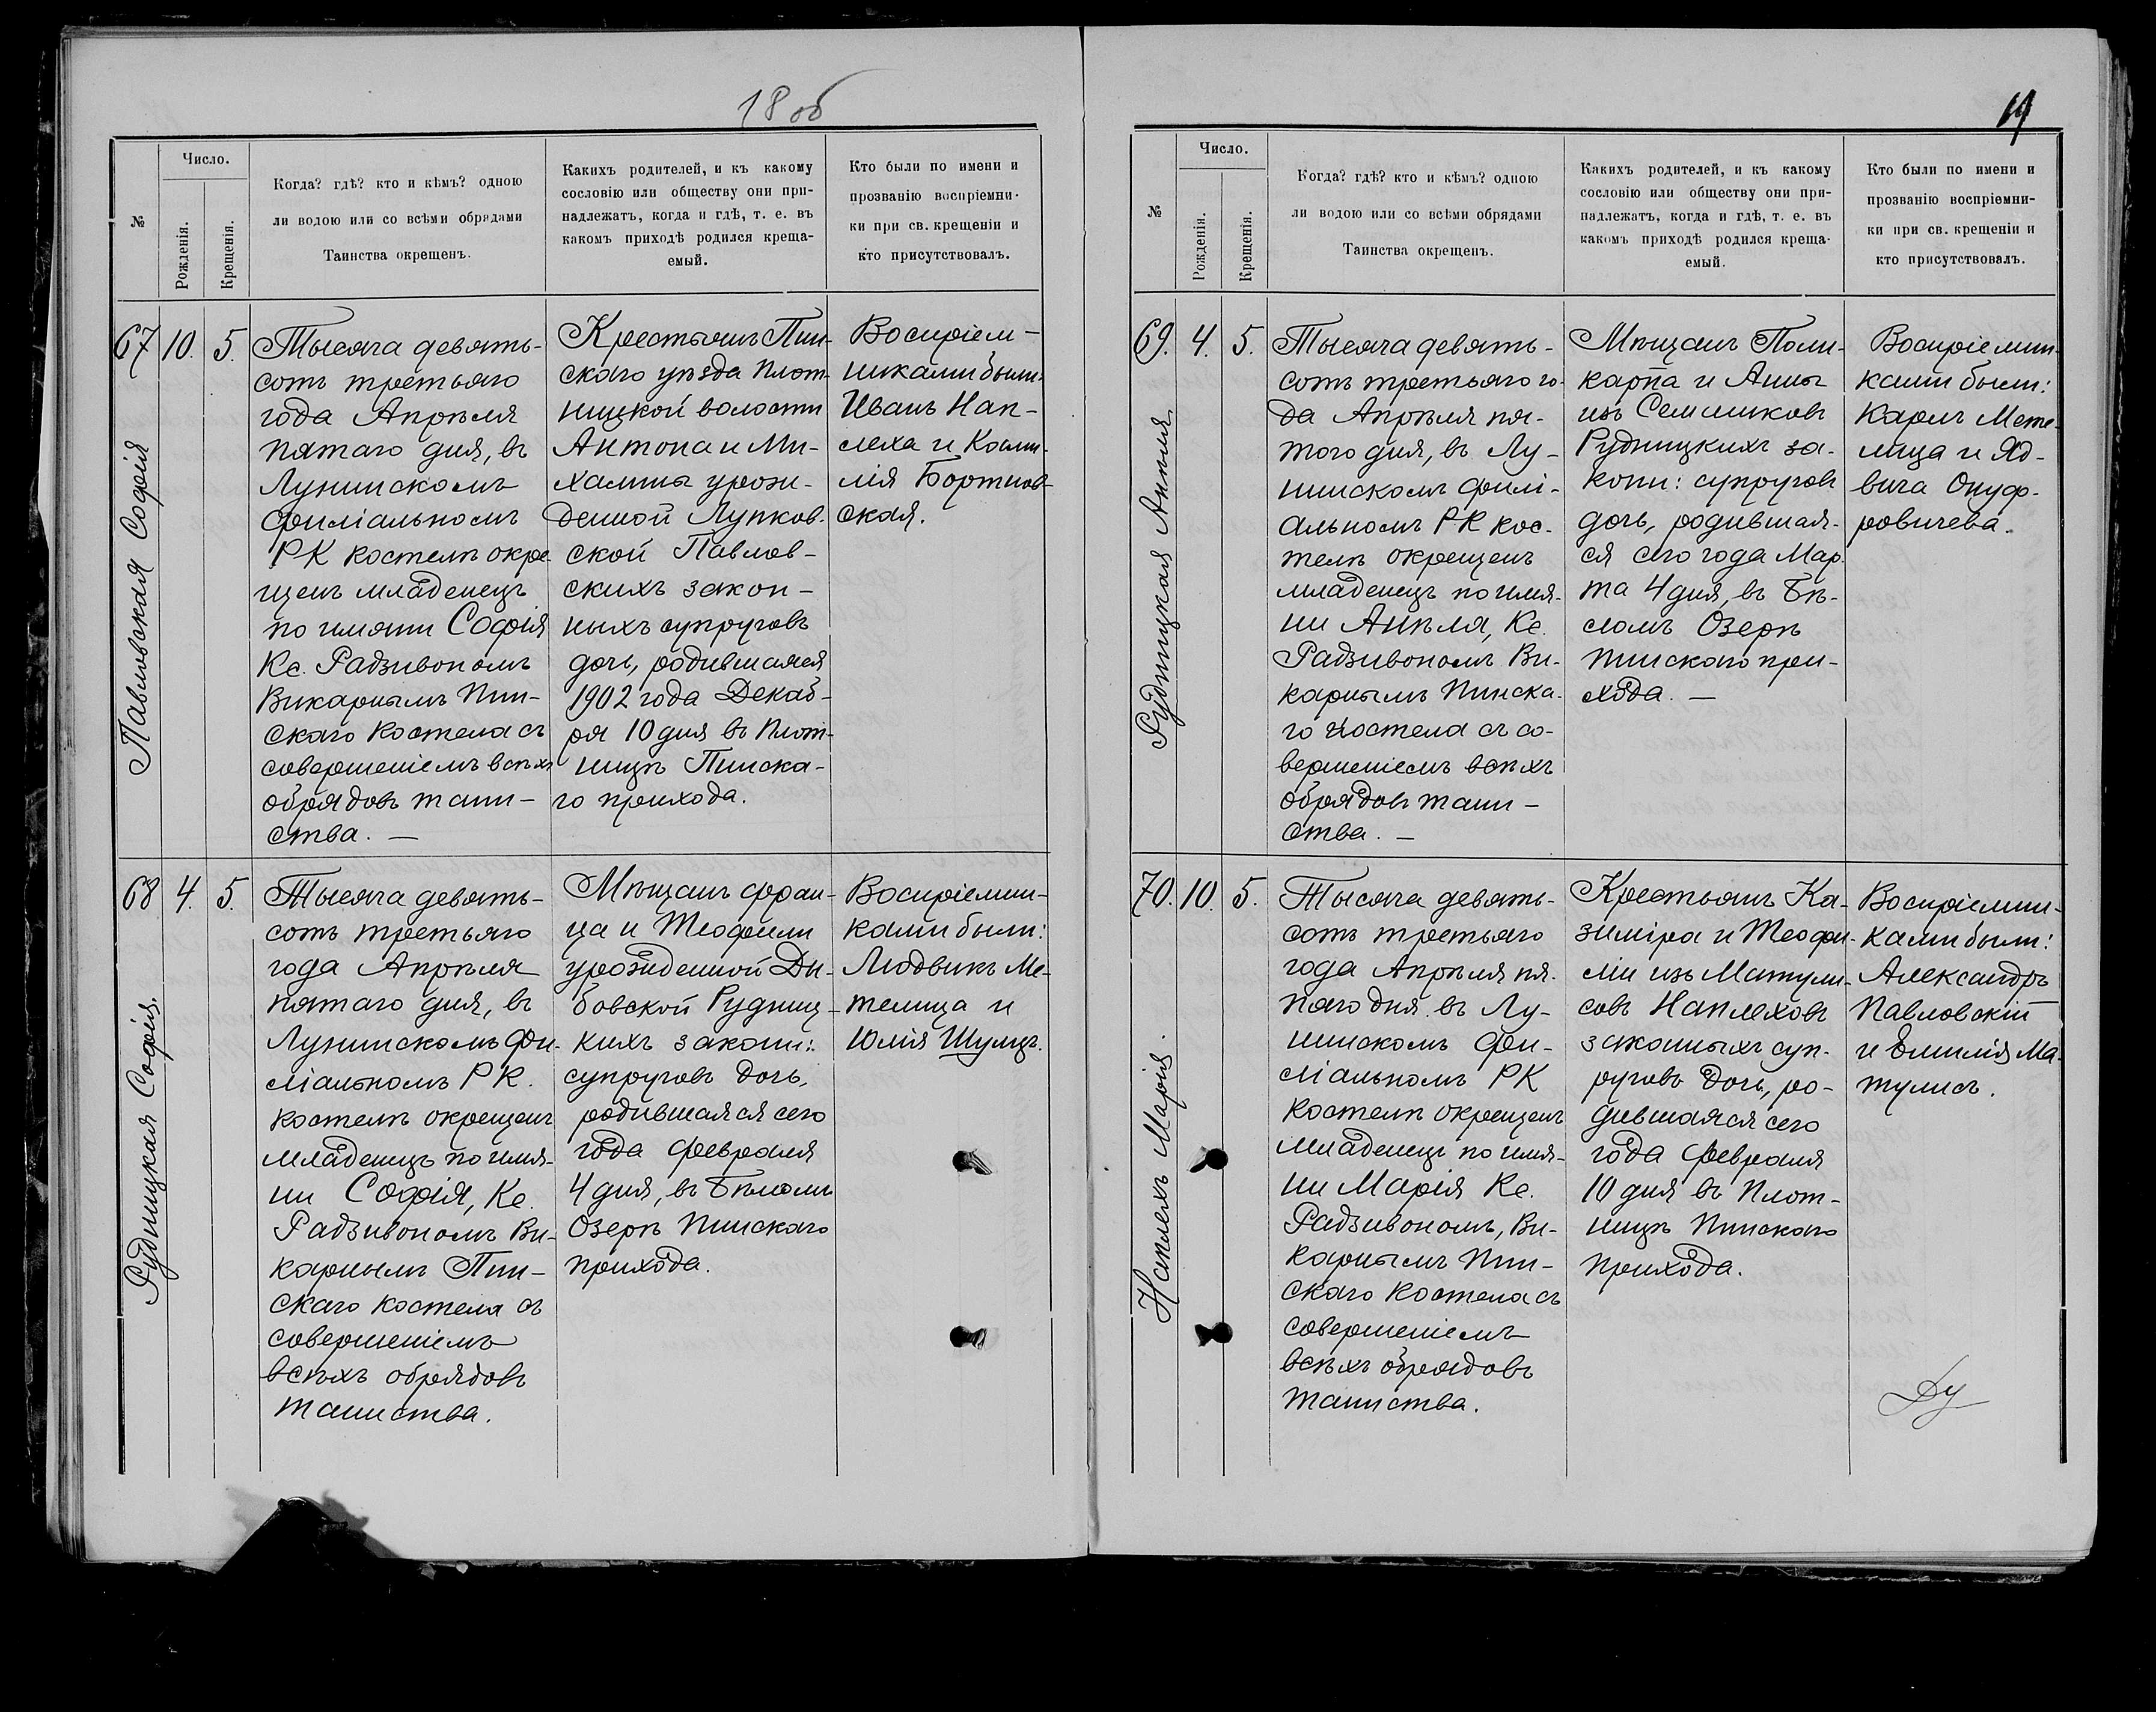 18 об
№
Число.
Рожденія.
Крещенія.
Когда? гдѣ? кто и кѣмъ? одною
ли водою или со всѣми обрядами
Таинства окрещенъ.
Какихъ родителей, и къ какому
сословію или обществу они при-
надлежатъ, когда и гдѣ, т. е. въ
какомъ приходѣ родился креща-
емый.
Кто были по имени и
прозванію воспріемни-
ки при св. крещеніи и
кто присутствовалъ.
67
Павловская Софія
10.
5.
Тысяча девять-
сотъ третьяго
года Апрѣля
пятаго дня, въ
Лунинскомъ
филіальномъ
РК костелѣ окре-
щенъ младенецъ
по имяни Софія
Кс. Радзивономъ
Викарнымъ Пин-
скаго Костела съ
совершеніемъ всѣхъ
обрядовъ таин-
ства. —
Крестьянъ Пин-
скаго уѣзда Плот-
ницкой волости
Антона и Ми-
халины урож-
денной Лупков-
ской Павлов-
скихъ закон-
ныхъ супруговъ
дочь, родившаяся
1902 года Декаб-
ря 10 дня въ Плот-
ницѣ Пинска-
го прихода.
Воспріем-
никами были:
Иванъ Нап-
леха и
Бортнов-
ская.
68
Рудницкая Софія.
4.
5.
Тысяча девять-
сотъ третьяго
года Апрѣля
пятаго дня, въ
Лунинскомъ Фи-
ліальномъ РК.
костелѣ окрещенъ
младенецъ по имя-
ни Софія, Кс.
Радзивономъ Ви-
карнымъ Пин-
скаго костела съ
совершеніемъ
всѣхъ обрядовъ
таинства.
Мѣщанъ Фран-
ца и Теофили
урожденной Ды-
бовской Рудниц-
кихъ законн:
супруговъ дочь,
родившаяся сего
года Февраля
4 дня, въ Бѣломъ
Озерѣ Пинскаго
прихода.
Воспріемни-
ками были:
Людвикъ Ме-
телица и
Юлія Шульцъ.
19
№
Число.
Рожденія.
Крещенія.
Когда? гдѣ? кто и кѣмъ? одною
ли водою или со всѣми обрядами
Таинства окрещенъ.
Какихъ родителей, и къ какому
сословію или обществу они при-
надлежатъ, когда и гдѣ, т. е. въ
какомъ приходѣ родился креща-
емый.
Кто были по имени и
прозванію воспріемни-
ки при св. крещеніи и
кто присутствовалъ.
69.
Рудницкая Анѣля
4.
5.
Тысяча девять-
сотъ третьяго го-
да Апрѣля пя-
того дня, въ Лу-
нинскомъ филі-
альномъ РК кос-
телѣ окрещенъ
младенецъ по имя-
ни Анѣля, Кс.
Радзивономъ Ви-
карнымъ Пинска-
го костела съ со-
вершеніемъ всѣхъ
обрядовъ таин-
ства. —
Мѣщанъ Поли-
карпа и Анны
изъ Семашковъ
Рудницкихъ за-
конн: супруговъ
дочь, родившая-
ся сего года Мар-
та 4 дня, въ Бѣ-
ломъ Озерѣ
Пинскаго при-
хода. —
Воспріемни-
ками были:
Карлъ Мете-
лица и Яд-
вига Онуф-
ровичева.
70.
Наплехъ Марія.
10.
5.
Тысяча девять-
сотъ третьяго
года Апрѣля пя-
таго дня въ Лу-
нинскомъ Фи-
ліальномъ РК
костелѣ окрещенъ
младенецъ по имя-
ни Марія Кс.
Радзивономъ, Ви-
карнымъ Пин-
скаго костела съ
совершеніемъ
всѣхъ обрядовъ
таинства.
Крестьянъ Ка-
зиміра и Теофи-
ліи изъ Матули-
совъ Наплеховъ
законныхъ суп-
руговъ дочь, ро-
дившаяся сего
года Февраля
10 дня въ Плот-
ницѣ Пинскаго
прихода.
Воспріемни-
ками были:
Александръ
Павловскій
и Эмилія Ма-
тулисъ.